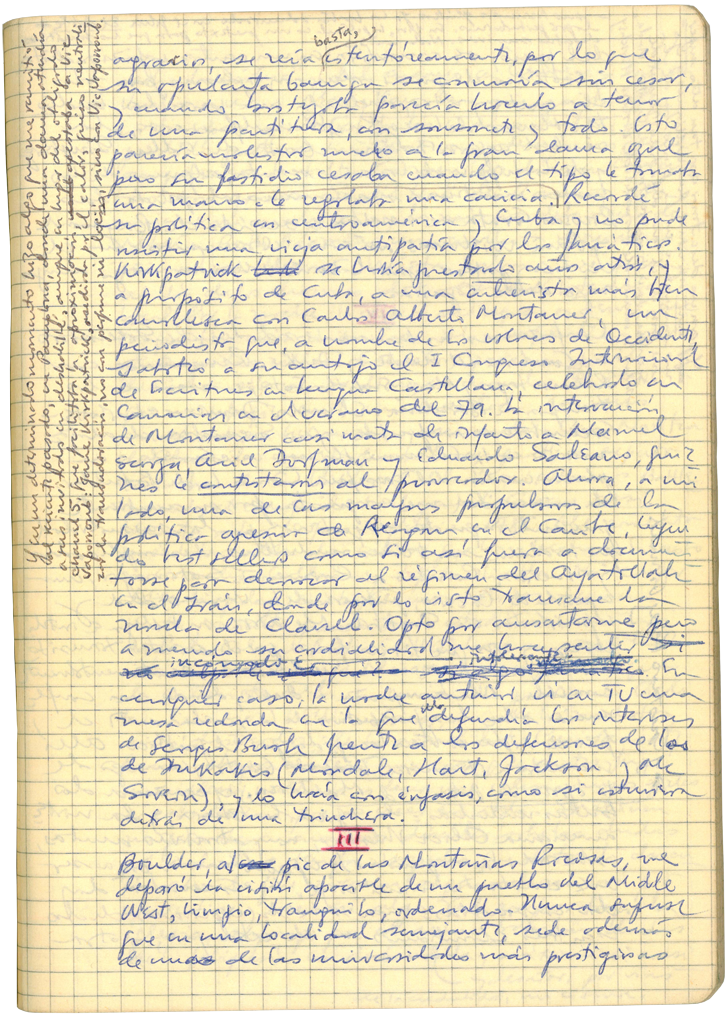 basta,
agracios, se reía estentóreamente, por lo que
su opulenta barriga se conmovía sin cesar,
y cuando parecía hacerlo a tenor
de una partitura, con sonsonete y todo. Esto
parecía molestar mucho a la gran dama azul
pero su fastidio cesaba cuando el tipo le tomaba
una mano o le regalaba una caricia. Recordé
su política en centroamérica y Cuba y no pude
resistir una vieja antipatía por los fanáticos.
Kirkpatrick se había prestado años atrás, y
a propósito de Cuba, a una entrevista más bien
canallesca con Carlos Alberto Montaner, un
periodista que, a nombre de los valores de Occidente,
saboteó a su antojo el I Congreso Internacional
de Escritores en Lengua Castellana, celebrado en
Canarias en el verano del 79. La intervención
de Montaner casi mata de infarto a Manuel
Scorza, Ariel Dorfman y Eduardo Galeano, quie-
nes le contestaron al provocador. Ahora, a mi
lado, una de las mayores propulsoras de la
política agresiva de Reagan en el Caribe, leyen-
do best sellers como si así fuera a documen-
tarse para derrocar al régimen del Ayatollah
en el Irán, donde por lo visto transcurre la
novela de Clavell. Opto por ausentarme pero
a menudo su cordialidad me hace sentir
incómodo e intolerante. En
cualquier caso, la noche anterior vi en TV una
mesa redonda en la que ella defendía los intereses
de Georges Bush frente a los defensores de los
de Dukakis (Mondale, Hart, Jackson y
), y lo hacía con énfasis, como si estuviera
detrás de una trinchera.
III
Boulder, al pie de las Montañas Rocosas, me
deparó la visión apacible de un pueblo del Middle
West, limpio, tranquilo, ordenado. Nunca supuse
que en una localidad semejante, sede además
de una de las universidades más prestigiosas
Y en un determinado momento hizo algo que me remitió
al verano pasado, en Pamplona, donde una dama atendía
a sus invitados en deshabillé, aunque en lugar del obligado
Chanel 5, que facilitan la aproximación, aportaba la Vic
Vaporoub: Jeane Kirkpatrick, asediada por el calor, quiso neutrali-
zar la transpiración, no con perfume ni loción, sino con Vic Vaporoub.